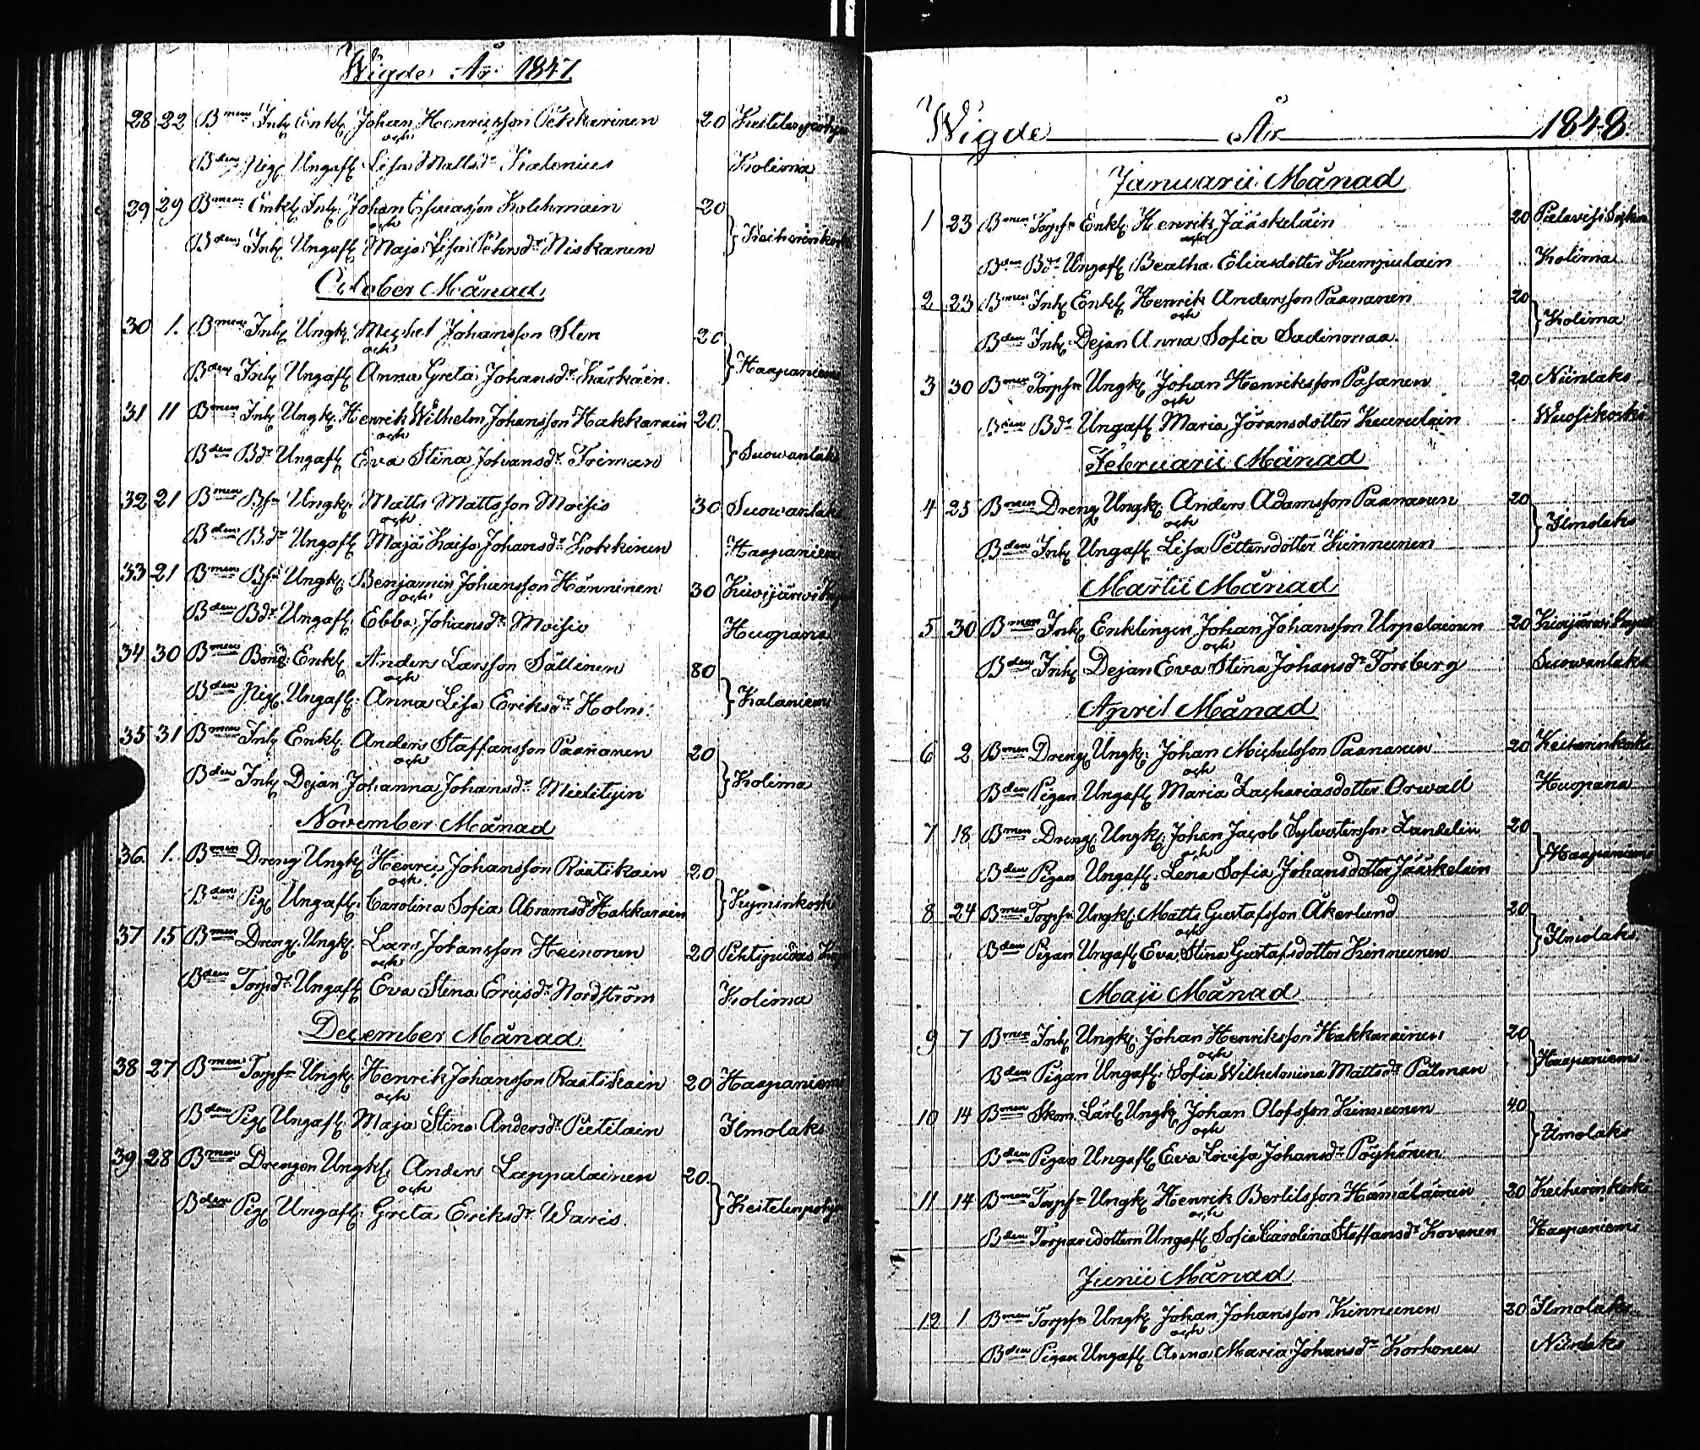 Wigde År 1847
28 22 Bmen Inh. Enkl. Johan Henricsson Pekkarinen 20 Keitelepohja
och
Bden Pig. Ungafl. Lisa Mattsdr Kalenius Kolima
29 29 Bmen Enkl. Inh. Johan Esaiasson Kolehmain 20
och
Bden Inh. Ungafl. Maja Lisa Petersdr Niskanen } Keiherinkoski
October Månad
30 1. Bmen Inh. Ungk. Michel Johansson Sten 20
och
Bden Inh. Ungafl. Anna Greta Johansdr Kärkäin. } Haapaniemi
31 11 Bmen Inh. Ungk. Henrik Wilhelm Johansson Hakkarain 20.
och
Bden Bdr Ungafl. Eva Stina Johansdr Friman } Suowanlaks
32 21 Bmen Bsn Ungk. Matts Mattsson Moisio 30 Suowanlaks
och
Bden Bdr Ungafl. Maja Kaisa Johansdr Kokkinen Haapaniemi
33 21 Bmen Bsn Ungk. Benjamin Johansson Hänninen 30 Kiwijärwi
och
Bden Bdr Ungafl. Ebba Johansdr Moisio Huopana
34 30 Bmen Bond. Enkl. Anders Larsson Sällinen 80
och
Bden Pig. Ungafl. Anna Lisa Eriksdr Holm. } Kalaniemi
35 31 Bmen Inh. Enkl. Anders Staffansson Paananen 20
och
Bden Inh. Dejan Johanna Johansdr } Kolima
November Månad
36. 1. Bmen Dreng Ungk. Henric Johansson Raatikain 20
och
Bden Pig. Ungafl. Carolina Sofia Abramsdr Hakkarain } Kyminkoski
37 15 Bmen Dreng. Ungk. Lars Johansson Heinonen 20 Pihtipudas
och
Bden Torpdr Ungafl. Eva Stina Ericsdr Nordström Kolima
December Månad
38 27 Bmen Torpsn Ungk. Henrik Johansson Raatikain 20 Haapaniemi
och
Bden Pig. Ungafl. Maja Stina Andersdr Pietilain Ilmolaks
39 28 Bmen Drengen Ungk. Anders Lappalainen 20.
och
Bden Pig. Ungafl. Greta Eriksdr Waris. } Keitelepohja
Wigde År 1848.
Januarii Månad
1 23 Bmen Torpsn Enkl. Henrik Jääskeläin 20
och
Bden Bdr Ungafl. Beatha Eliasdotter Kumpulain Kolima
2 23 Bmen Inh. Enkl. Henrik Andersson Paananen 20
och } Kolima
Bden Inh. Dejan Anna Sofia Sadinomaa.
3 30 Bmen Torpsn Ungk. Johan Henriksson Pasanen 20 Niinilaks
och
Bden Bdr Ungafl. Maria Jöransdotter Keurulain Wuosikoski
Februarii Månad
4 25 Bmen Dreng Ungk. Anders Adamsson Paananen 20
och } Ilmolaks
Bden Inh. Ungafl. Lisa Pettersdotter Kinnunen
Martii Månad
5 30 Bmen Inh. Enklingen Johan Johansson Urpelainen 20 Kiwijärwi
och
Bden Inh. Dejan Eva Stina Johansdr Forsberg Suowanlaks
April Månad
6 2 Bmen Dreng. Ungk. Johan Michelsson Paananen 20 Keiherinkoski
och
Bden Pigan Ungafl. Maria Zachariasdotter Orwall Huopana
7 18 Bmen Dreng. Ungk. Johan Jacob Sylvestersson Landelin 20
och } Haapaniemi
Bden Pigan Ungafl. Lena Sofia Johansdotter Jääskelain
8 24 Bmen Torpsn Ungk. Matts Gustafsson Åkerlund 20
och } Ilmolaks
Bden Pigan Ungafl. Eva Stina Gustafsdotter Kinnunen
Maji Månad
9 7 Bmen Inh. Ungk. Johan Henriksson Hakkarainen 20
och } Haapaniemi
Bden Pigan Ungafl. Sofia Wilhelmina Mattsdr Palman
10 14 Bmen Skom. Lärl. Ungk. Johan Olofsson Kinnunen 40
och } Ilmolaks
Bden Pigan Ungafl. Eva Lovisa Johansdr Pöyhönen
11 14 Bmen Torpsn Ungk. Henrik Bertilsson Hämäläinen 20 Keiherinkoski
och
Bden Torparedottern Ungafl. Sofia Carolina Staffansdr Kovanen Haapaniemi
Junii Månad
12 1 Bmen Torpsn Ungk. Johan Johansson Kinnunen 20 Ilmolaks
och
Bden Pigan Ungafl. Anna Maria Johansdr Korhonen Niinilaks